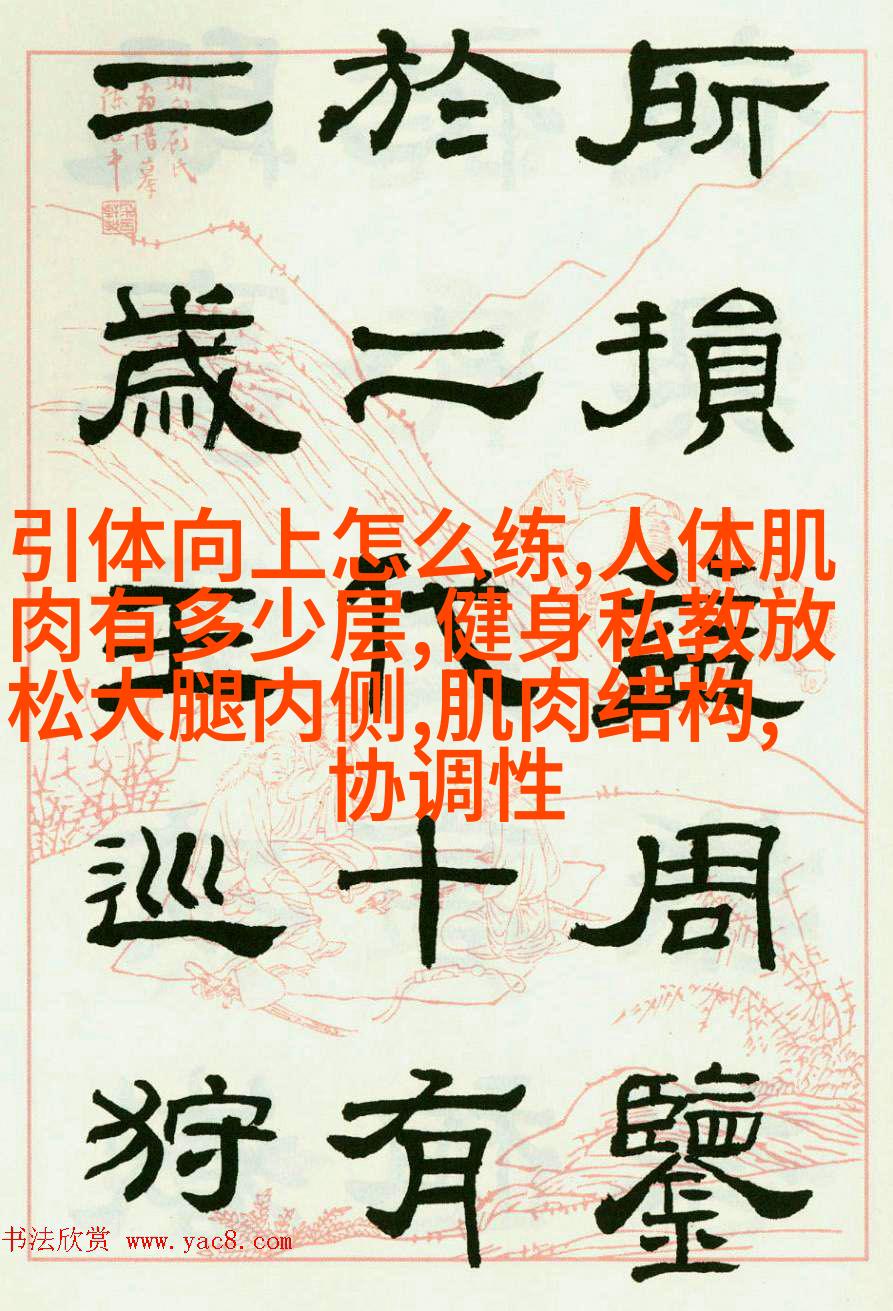 所損益周鑒
於二代十有
二歲王巡狩
引体向上怎么练,人体肌
肉有多少层,健身私教放
松大腿内侧,肌肉结构,
协调性
书法欣赏 www.yac8.com